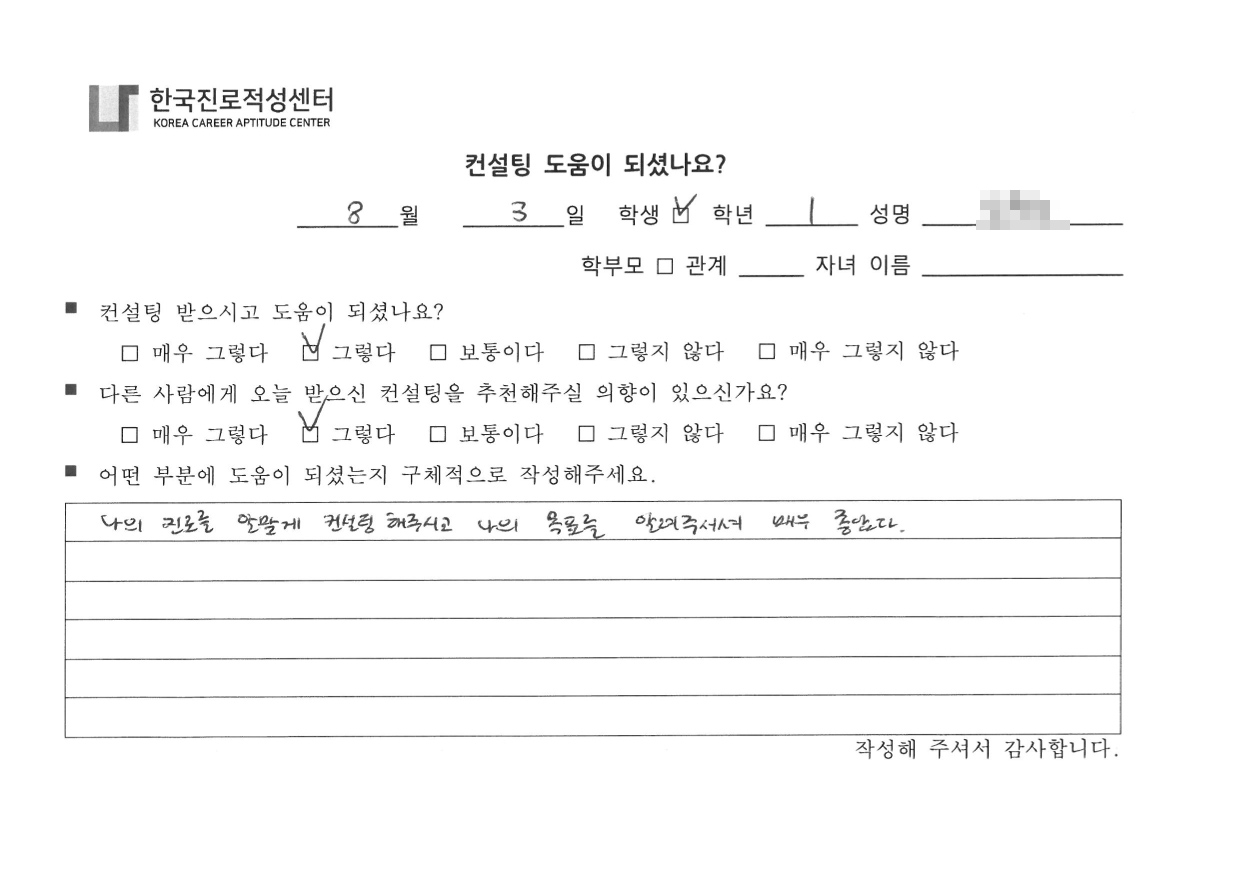 한국진로적성센터
KOREA CAREER APTITUDE CENTER
컨설팅 도움이 되셨나요?
8 월 3 일 학생 ☑ 학년 1 성명
학부모 □ 관계 자녀 이름
■ 컨설팅 받으시고 도움이 되셨나요?
□ 매우 그렇다 ☑ 그렇다 □ 보통이다 □ 그렇지 않다 □ 매우 그렇지 않다
■ 다른 사람에게 오늘 받으신 컨설팅을 추천해주실 의향이 있으신가요?
□ 매우 그렇다 ☑ 그렇다 □ 보통이다 □ 그렇지 않다 □ 매우 그렇지 않다
■ 어떤 부분에 도움이 되셨는지 구체적으로 작성해주세요.
나의 진로를 알맞게 컨설팅 해주시고 나의 목표를 알려주셔서 매우 좋았다.
작성해 주셔서 감사합니다.